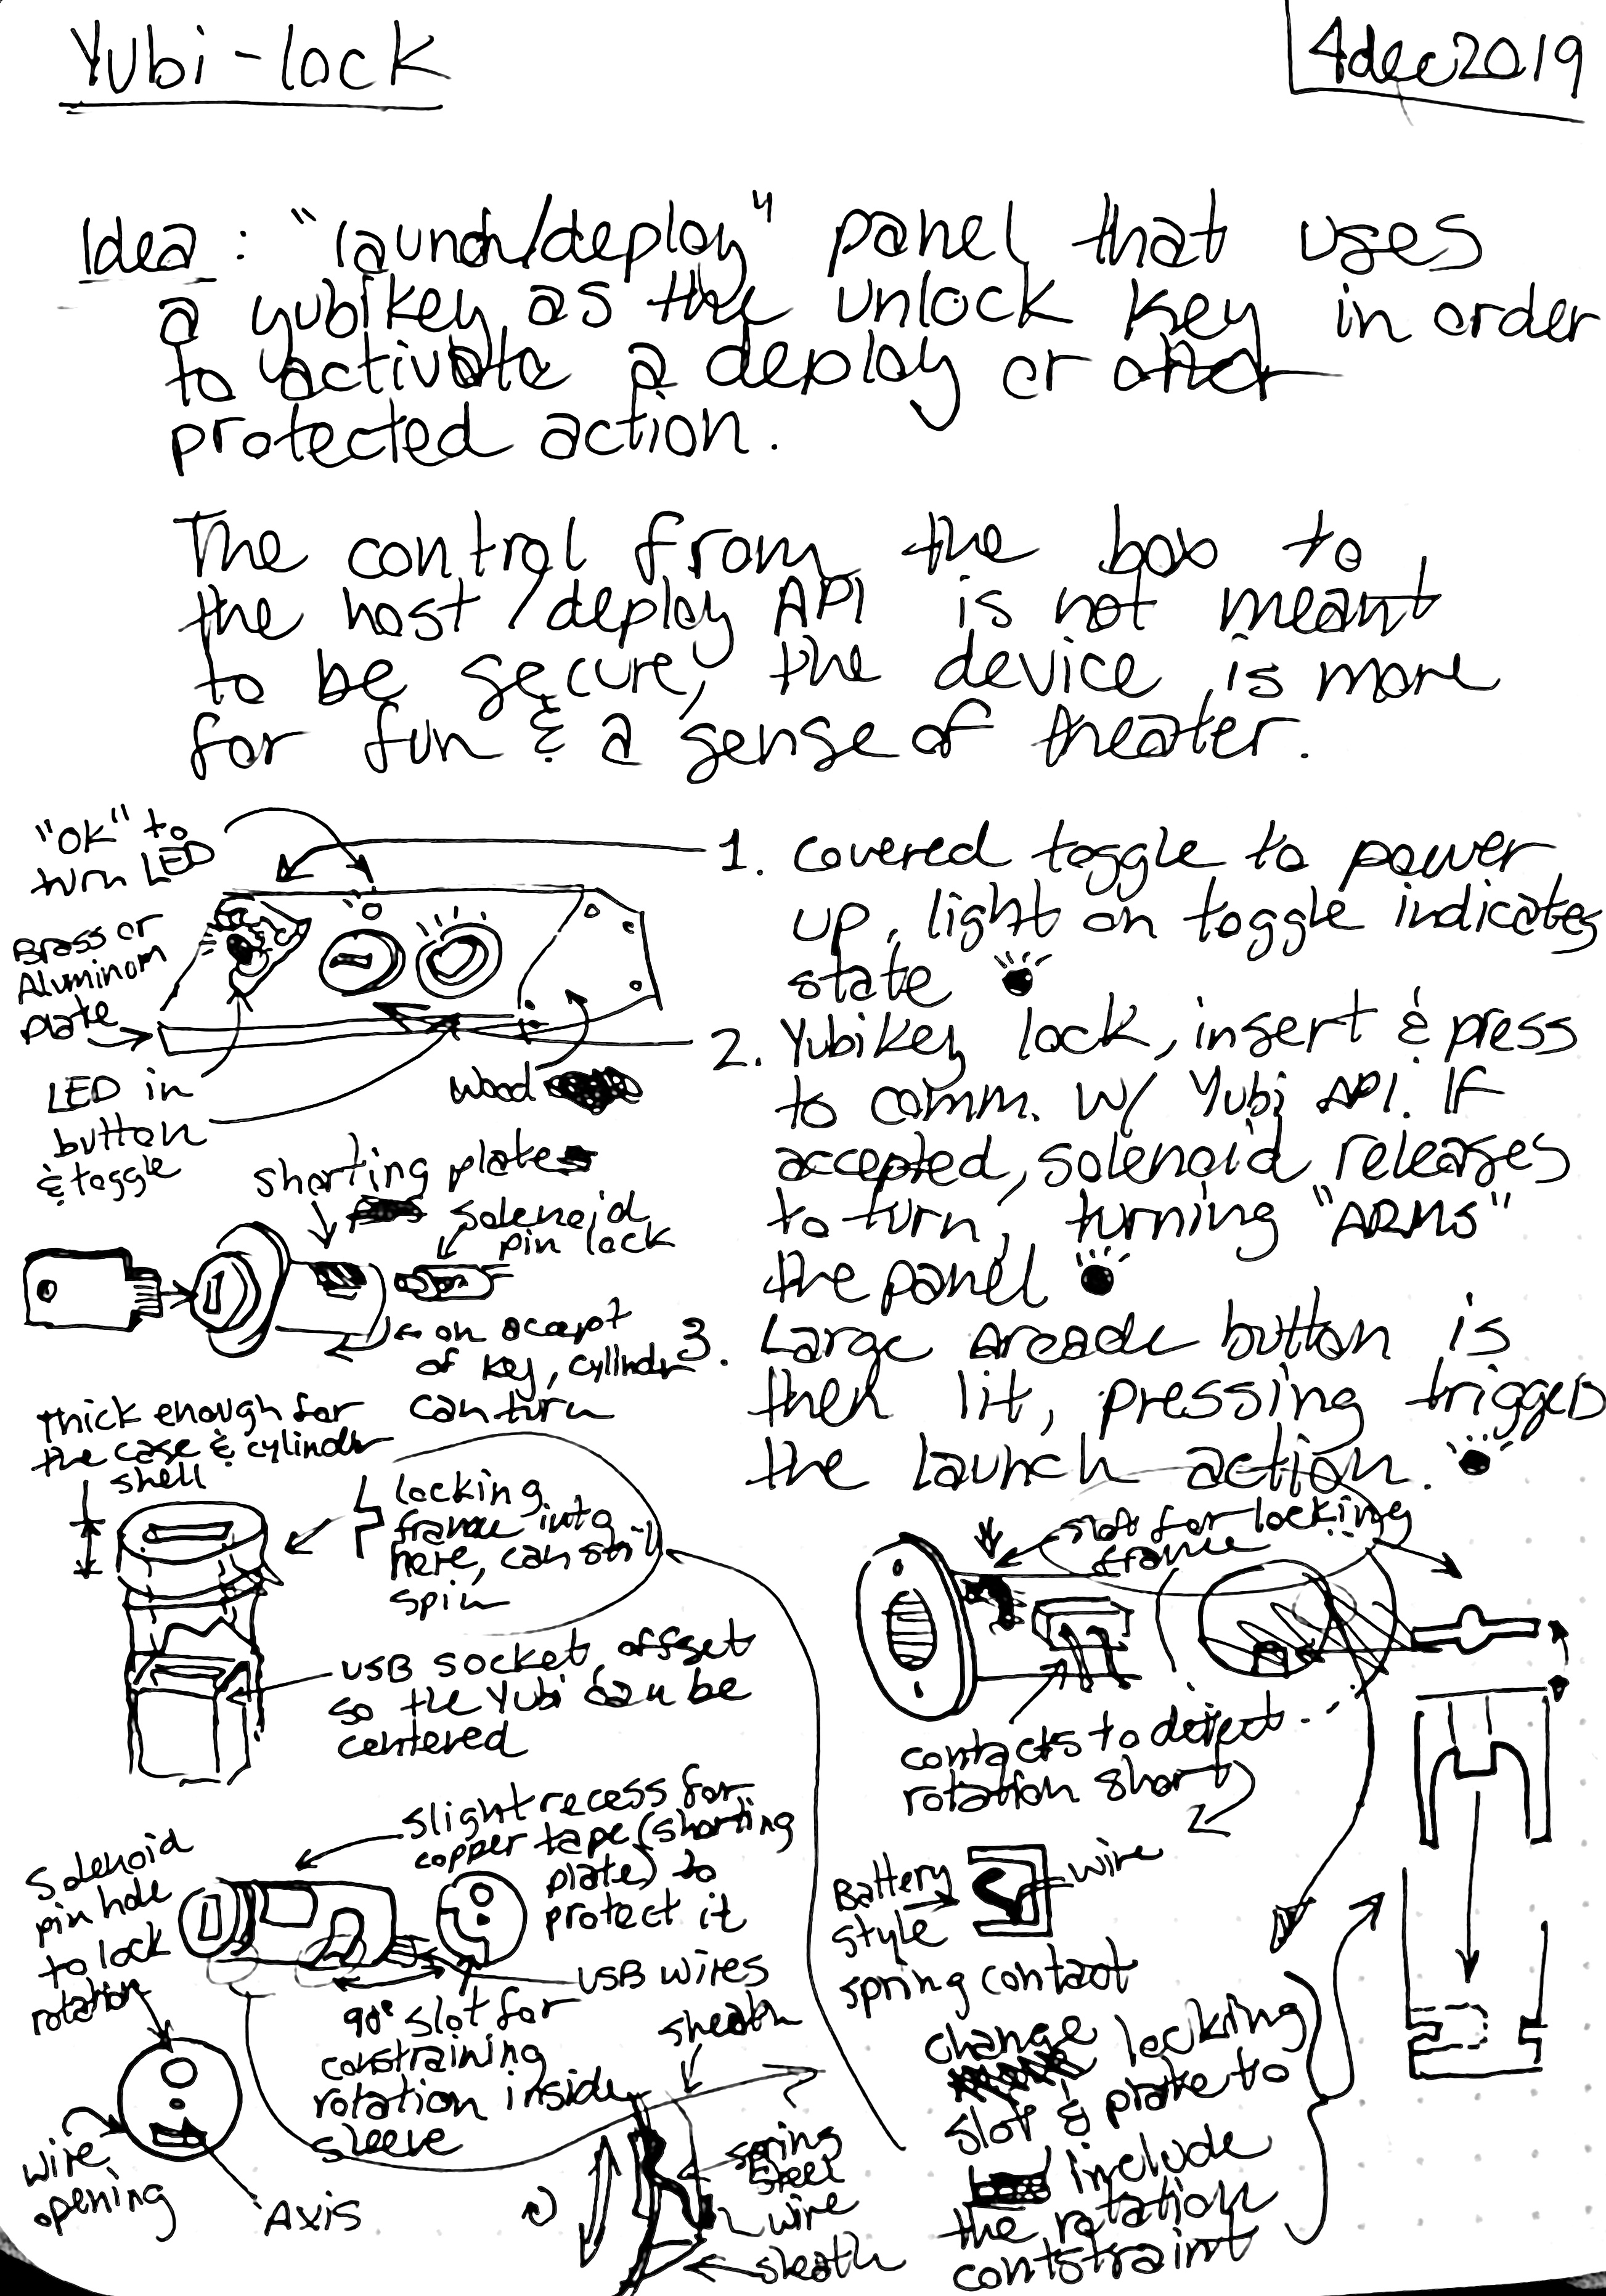 Yubi-lock
4dec2019
Idea: "launch/deploy" panel that uses
a yubikey as the unlock key in order
to activate a deploy or other
protected action.
The control from the box to
the host/deploy API is not meant
to be secure, the device is more
for fun & a sense of theater.
"OK" to
turn LED
Brass or
Aluminum
plate
LED in
button
& toggle
Wood
1. Covered toggle to power
up, light on toggle indicates
state
2. Yubikey lock, insert & press
to comm. w/ Yubi API. If
accepted, solenoid releases
to turn, turning "ARMS"
the panel
3. Large arcade button is
then lit, pressing triggers
the launch action.
shorting plate
solenoid
pin lock
on accept
of key, cylinder
can turn
thick enough for
the case & cylinder
shell
locking
frame into
here, can still
spin
USB socket offset
so the Yubi can be
centered
slot for locking
frame
contacts to detect
rotation short
Battery
style
spring contact
wire
slight recess for
copper tape (shorting
plate) to
protect it
Solenoid
pin hole
to lock
rotation
USB wires
90° slot for
constraining
rotation inside
sleeve
wire
opening
Axis
sheath
spring
steel
wire
sheath
change locking
slot & plate to
include
the rotation
contstraint